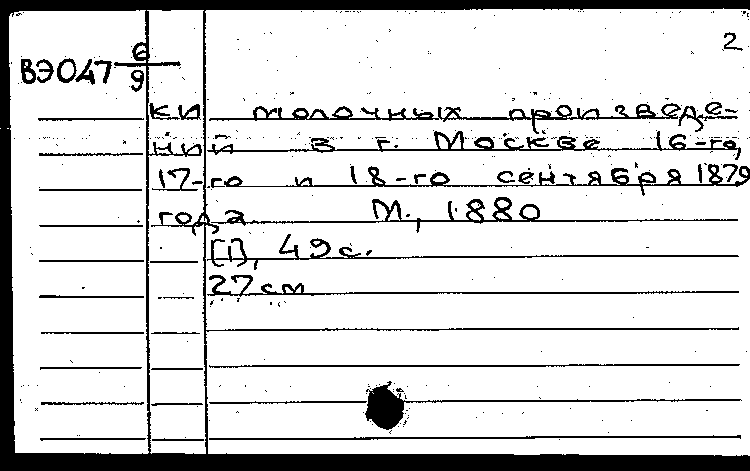 2
ВЭ047 6/9
ки молочных произведе-
ний в г. Москве 16-го,
17-го и 18-го сентября 1879
года М., 1880
[1], 49 с.
27 см